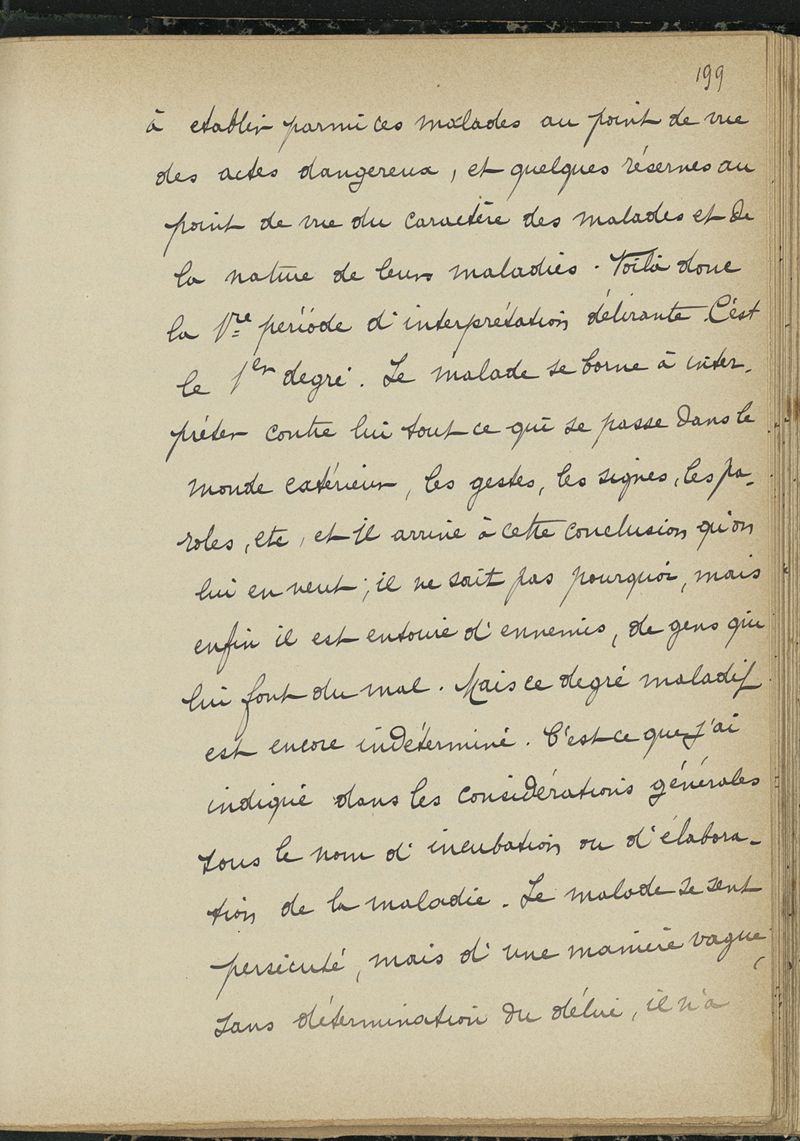 199
à etablir parmi ces malades au point de vue
des actes dangereux, et quelques réserves au
point de vue du caractère des malades et de
la nature de leurs maladies. Voilà donc
la 1re période d'interprétation délirante. C'est
le 1er degré. Le malade se borne à inter-
préter contre lui tout ce qui se passe dans le
monde extérieur, les gestes, les signes, les pa-
roles, etc, et il arrive à cette conclusion qu'on
lui en veut; il ne sait pas pourquoi, mais
enfin il est entouré d'ennemis, de gens qui
lui font du mal. Mais ce degré maladif
est encore indéterminé. C'est ce que j'ai
indiqué dans les considérations générales
sous le nom d'incubation ou d'élabora-
tion de la maladie. Le malade se sent
persécuté, mais d'une manière vague,
sans détermination du délire, il n'a